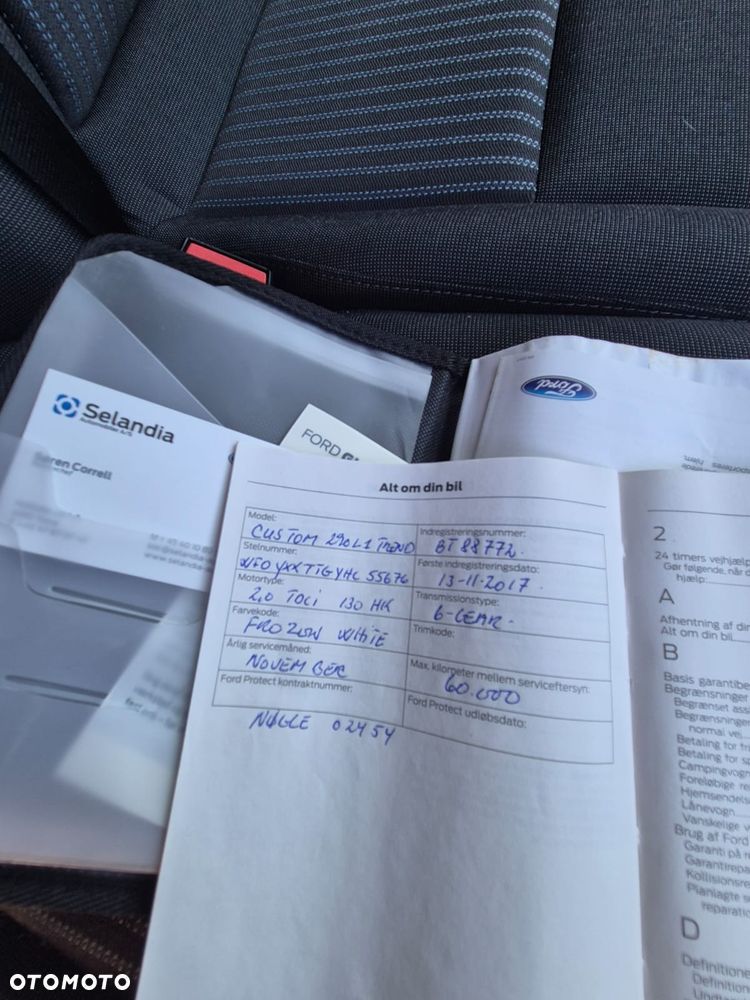 Selandia
Automobiler A/S
Søren Correll
FORD
Ford
Alt om din bil
Model:
CUSTOM 290L1 TREND
Indregistreringsnummer:
BT 88772.
Stelnummer:
WF0YXXTTGYHC55676
Første indregistreringsdato:
13-11-2017.
Motortype:
2,0 TDCi 130 HK
Transmissionstype:
6-GEAR.
Farvekode:
FROZEN WHITE
Trimkode:
Årlig servicemåned:
NOVEMBER
Max. kilometer mellem serviceeftersyn:
60.000
Ford Protect kontraktnummer:
Ford Protect udløbsdato:
NØGLE 02454
2
24 timers vejhjælp
Gør følgende, når d
hjælp:
A
Afhentning af di
Alt om din bil
B
Basis garantibe
Begrænsninger
Begrænset ass
Begrænsninge
normal vej
Betaling for fr
Betaling for s
Campingvogn
Foreløbige re
Hjemsendels
Lånevogn
Vanskelige v
Brug af Ford
Garanti på r
Garantirepa
Kollisionsre
Planlagte s
reparatio
D
Definitione
Definition
OTOMOTO